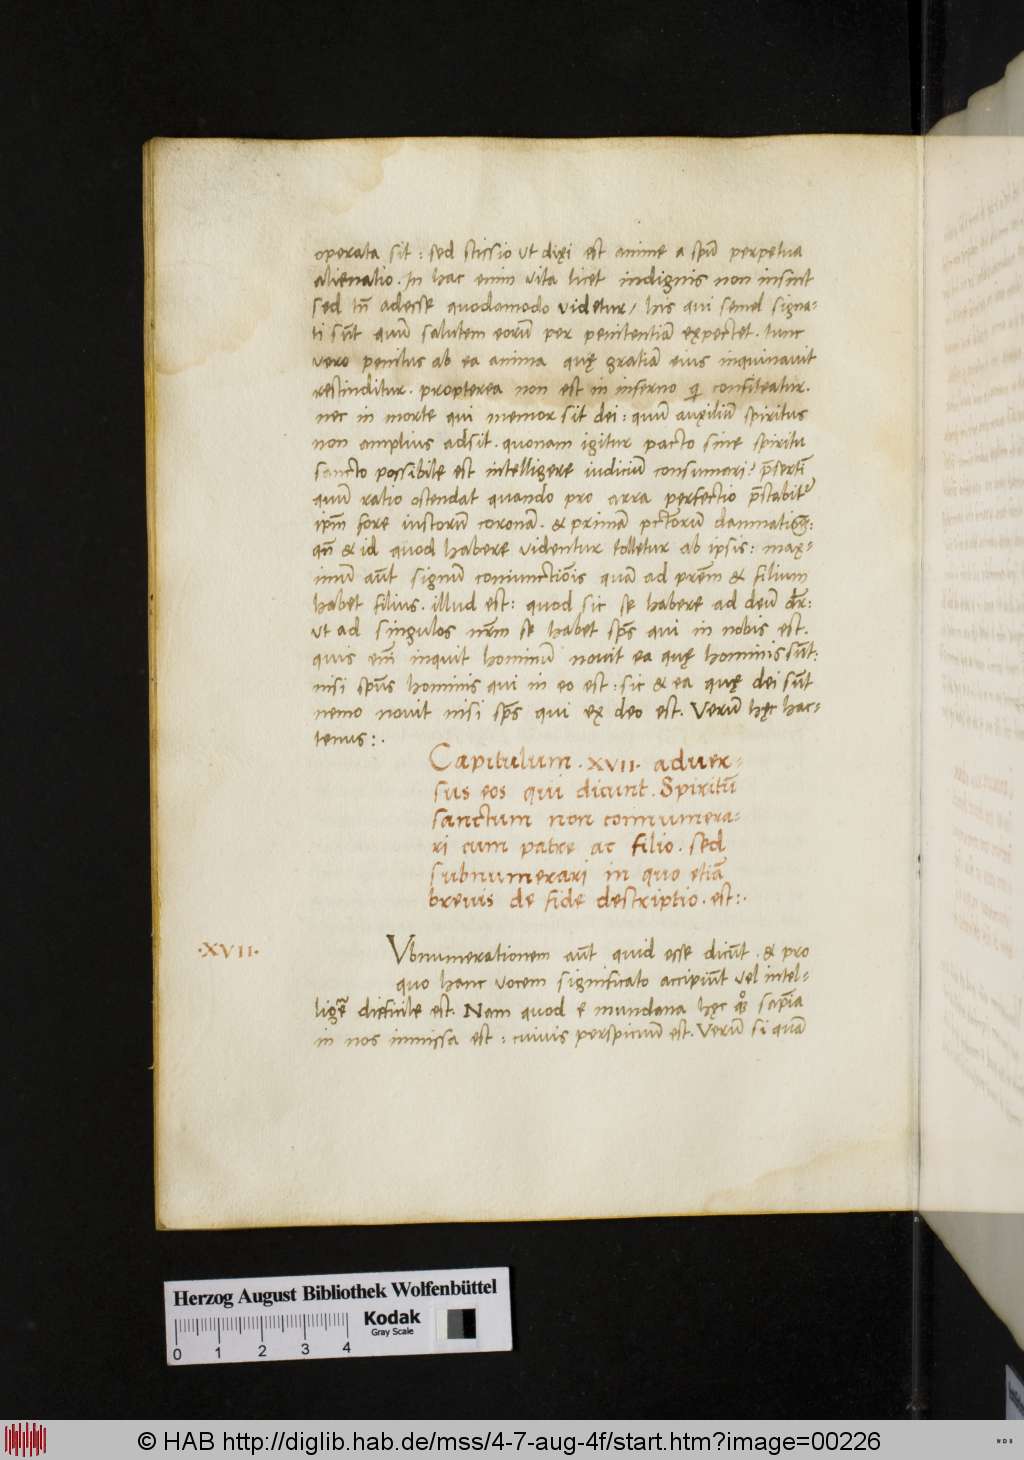 operata sit : sed scissio ut dixi est anime a spũ perpetua
alienatio. In hac enim vita licet indignis non insint
sed tñ adesse quodamodo videtur / his qui semel signa-
ti sũt quũ salutem eorũ per penitentiã expectet. tunc
vero penitus ab ea anima quę gratiã eius inquinavit
rescinditur. propterea non est in inferno qi confiteatur.
nec in morte qui memor sit dei : quũ auxiliũ spiritus
non amplius adsit. quonam igitur pacto sine spiritu
sancto possibile est intelligere iudiciũ consumari? p̃sertĩ
quũ ratio ostendat quando pro arra perfectio p̃stabit̃
ip̃m fore iustorũ coronã. & primã pctorũ damnation̄ẽ:
qñ & id quod habere videntur tolletur ab ipsis: max-
imũ aũt signũ coniunctiõis quã ad pr̃em & filium
habet filius. illud est: quod sic se habere ad deũ dr̃:
ut ad singulos nr̃m se habet sp̃s qui in nobis est.
quis em̃ inquit hominũ novit ea quę hominis sũt:
nisi sp̃us hominis qui in eo est : sic & ea quę dei sũt
nemo novit nisi sp̃s qui ex deo est. Verũ hęc hac-
tenus : .
Capitulum . XVII . adver-
sus eos qui dicunt . Spiritũ
sanctum non connumera-
ri cum patre ac filio . sed
subnumerari in quo etiã
brevis de fide descriptio . est : .
·XVII·
Vbnumerationem aũt quid esse dicũt . & pro
quo hanc vocem significato accipiũt vel intel-
ligẽ difficile est. Nam quod e mundana hęc qͦȝ sap̃ia
in nos inmissa est : cuivis perspicuũ est. Verũ si quã
Herzog August Bibliothek Wolfenbüttel
Kodak
Gray Scale
0 1 2 3 4
© HAB http://diglib.hab.de/mss/4-7-aug-4f/start.htm?image=00226